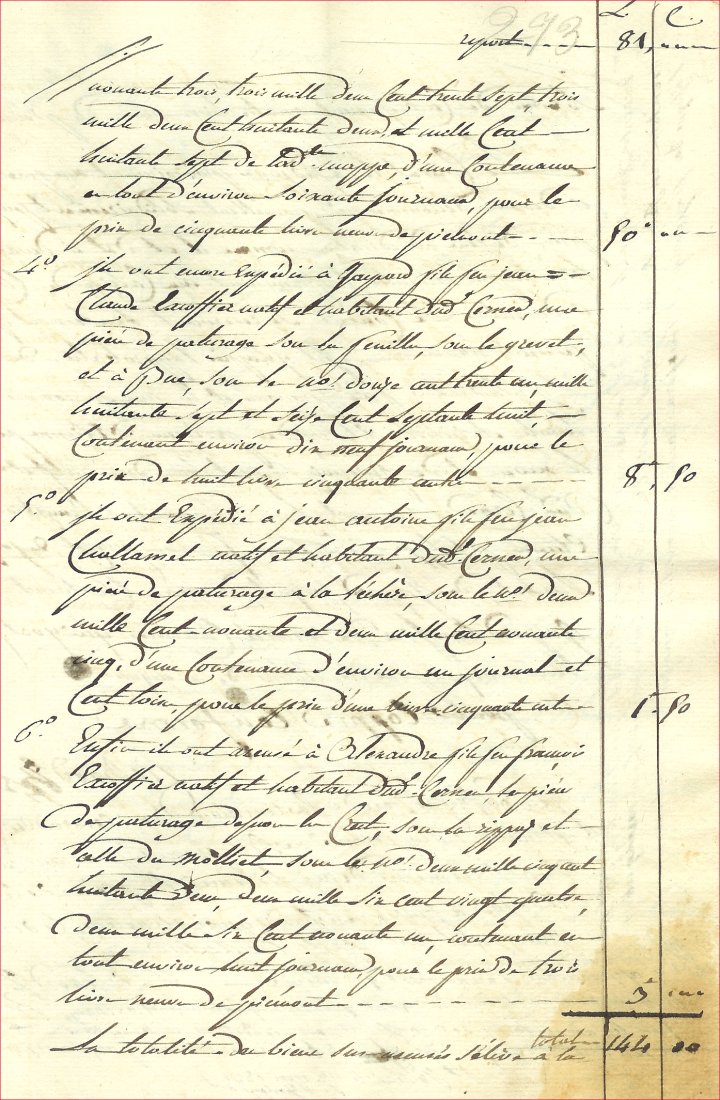 293
L. C.
report - - - - 81, " "
nonante trois, trois mille deux Cent trente sept, trois
mille deux Cent huitante deux, et mille Cent
huitante sept de lad.te mappe, d'une Contenance
en tout d'environ Soixante journaux, pour le
prix de cinquante livre neuve de piemont - - - 50 " "
4.o ils ont encore Expédié à Gaspard fils feu jean
Claude Excoffier natif et habitant dud.t Cernex, une
pièce de paturage sou la feuille, sou le grevet,
et à Bué, sou le no. douze cent trente un, mille
huitante sept et seize Cent Septante huit,
Contenant environ dix neuf journaux, pour le
prix de huit livre cinquante cents - - - - - 8, 50
5.o ils ont Expédié à jean antoine fils feu jean
Challamel natif et habitant dud.t Cernex, une
pièce de paturage à la Séchère, sou le no. deux
mille Cent nonante et deux mille Cent nonante
cinq, d'une Contenance d'environ un journal et
Cent toise, pour le prix d'une livre cinquante cent - 1. 50
6.o Enfin ils ont acensé à Alexandre fils feu françois
Excoffier natif et habitant dud.t Cernex, la pièce
de paturage de sou la Crat, sou la rippaz et
celle du Molliet, sou le no. deux mille cinq cent
huitante deux, deux mille Six cent vingt quatre,
deux mille Six Cent nonante un, contenant en
tout environ huit journaux, pour le prix de trois
livre neuve de piémont - - - - - - - - 3 " "
La totalité des biens sus acensés s'élève à la total 144 00